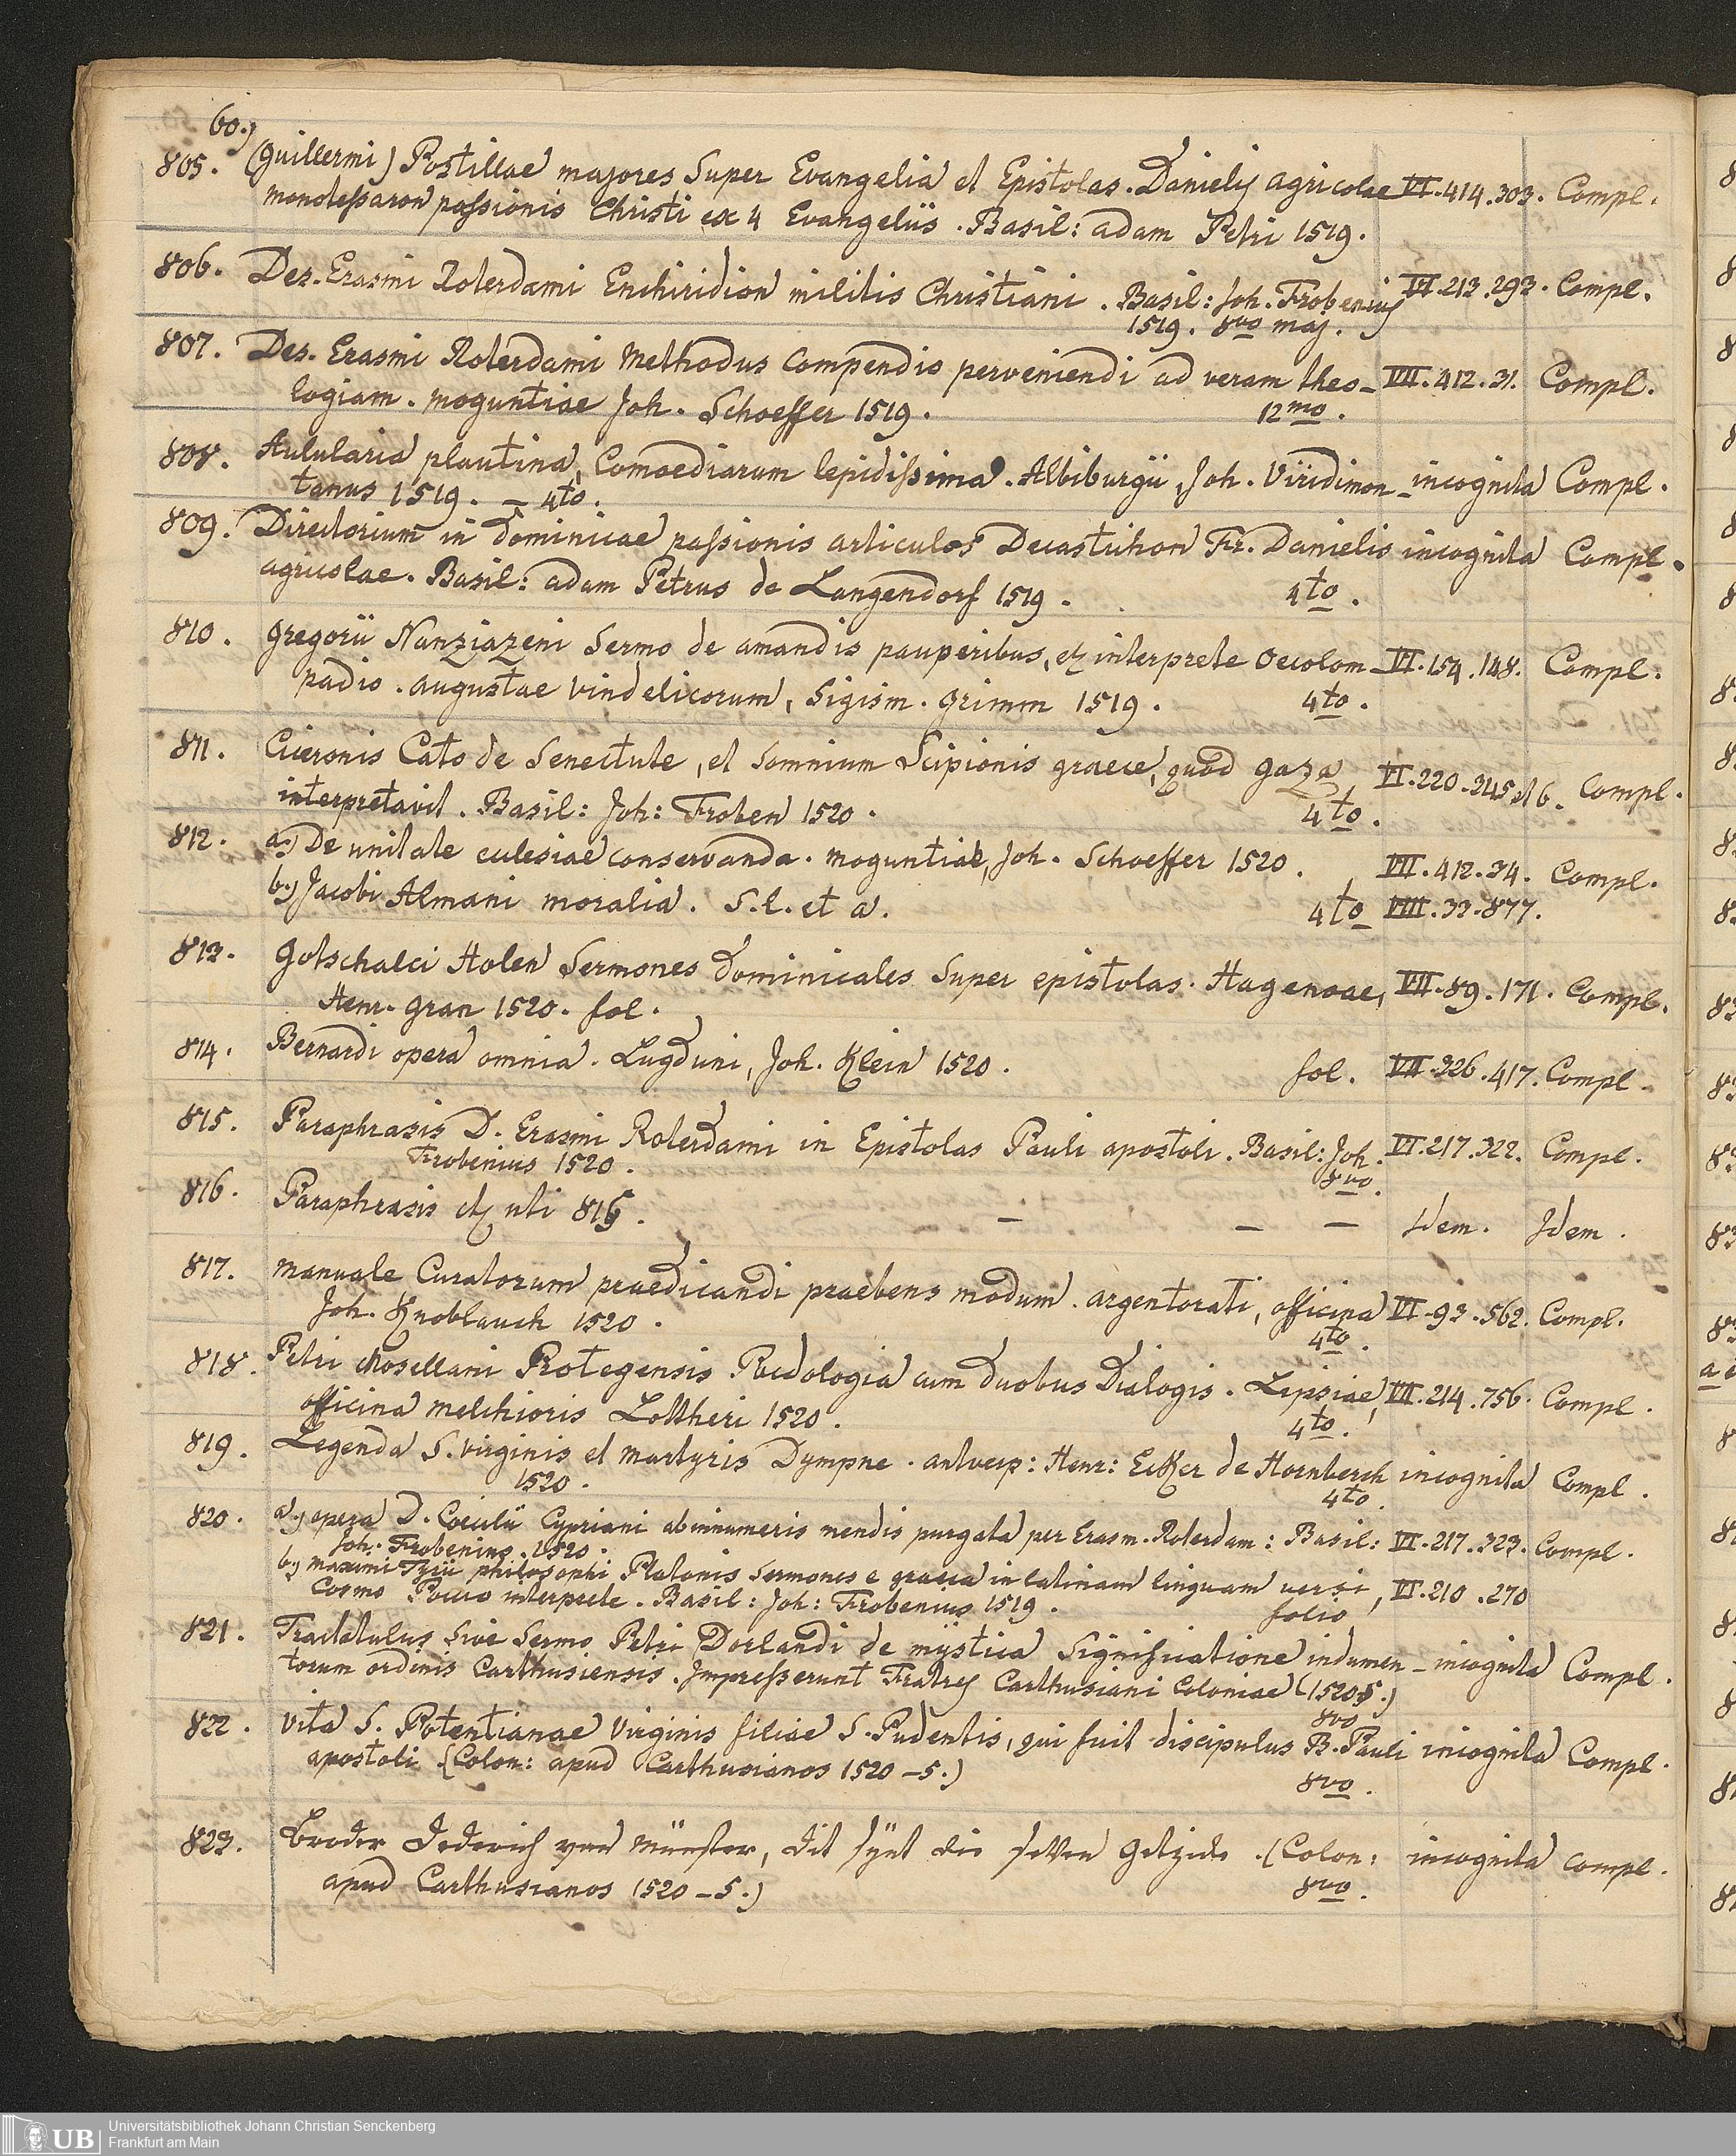 60.)
805. (Guillermi) Postillae majores super Evangelia et Epistolas. Danielis agricolae VI. 414. 303. Compl.
monotessaron passionis Christi ex 4 Evangeliis. Basil: adam Petri 1519.
806. Des. Erasmi Roterdami Enchiridion militis Christiani. Basil: Joh. Frobenius VI. 213. 293. Compl.
1519. 8vo maj.
807. Des. Erasmi Roterdami Methodus compendio perveniendi ad veram theo- VII. 412. 31. Compl.
logiam. moguntiae Joh. Schoeffer 1519. 12mo.
808. Aulularia plautina, Comoediarum lepidissima. Albiburgii, Joh. Viridimon- incognita Compl.
tanus 1519. – 4to.
809. Directorium in dominicae passionis articulos Decastichon Fr. Danielis incognita Compl.
agricolae. Basil: adam Petrus de Langendorf 1519. 4to.
810. Gregorii Nanziazeni Sermo de amandis pauperibus, interprete Oecolom- VI. 154. 148. Compl.
padio. augustae vindelicorum, Sigism. Grimm 1519. 4to.
811. Ciceronis Cato de Senectute, et somnium Scipionis graece, quod Gaza VI. 220. 345 et 6. Compl.
interpretavit. Basil: Joh: Froben 1520. 4to.
812. a.) De unitate eclesiae conservanda. moguntiae, Joh. Schoeffer 1520. VII. 412. 34. Compl.
b.) Jacobi Almani moralia. S. l. et a. 4to VIII. 33. 877.
813. Gotschalci Holen Sermones dominicales super epistolas. Hagenoae, VII. 89. 171. Compl.
Henr. Gran 1520. fol.
814. Bernardi opera omnia. Lugduni, Joh. Klein 1520. fol. VII. 326. 417. Compl.
815. Paraphrasis D. Erasmi Roterdami in Epistolas Pauli apostoli. Basil: Joh. VI. 217. 322. Compl.
Frobenius 1520. 8vo.
816. Paraphrasis etc uti 815. – – – Idem. Idem.
817. manuale Curatorum praedicandi praebens modum. argentorati, officina VI. 93. 562. Compl.
Joh. Knoblauch 1520. 4to.
818. Petri Mosellani Protegensis Paedologia cum duobus Dialogis. Lipsiae, VII. 214. 756. Compl.
officina melchioris Lottheri 1520. 4to.
819. Legenda S. virginis et martyris Dympne. antverp: Henr: Ecker de Hornberch incognita Compl.
1520. 4to.
820. a.) opera D. Coecilii Cypriani ab innumeris mendis purgata per Erasm. Roterdam: Basil: VI. 217. 323. Compl.
Joh. Frobenius. 1520.
b.) maximi Tyrii philosophi Platonis sermones e graeca in latinam linguam versi, VI. 210. 270
Cosmo Paccio interprete. Basil: Joh: Frobenius 1519. folio
821. Tractatulus sive sermo Petri Dorlandi de mijstica Significatione indumen- incognita Compl.
torum ordinis Carthusiensis. Impresserunt Fratres Carthusiani Coloniae (1520-5.)
8vo
822. vita S. Potentianae Virginis filiae S. Pudentis, qui fuit discipulus B. Pauli incognita Compl.
apostoli. (Colon: apud Carthusianos 1520–5.) 8vo.
823. Broder Dederich van Münster, dit sÿnt die seven Getzide. (Colon: incognita compl.
apud Carthusianos 1520–5.) 8vo.
UB Universitätsbibliothek Johann Christian Senckenberg
Frankfurt am Main